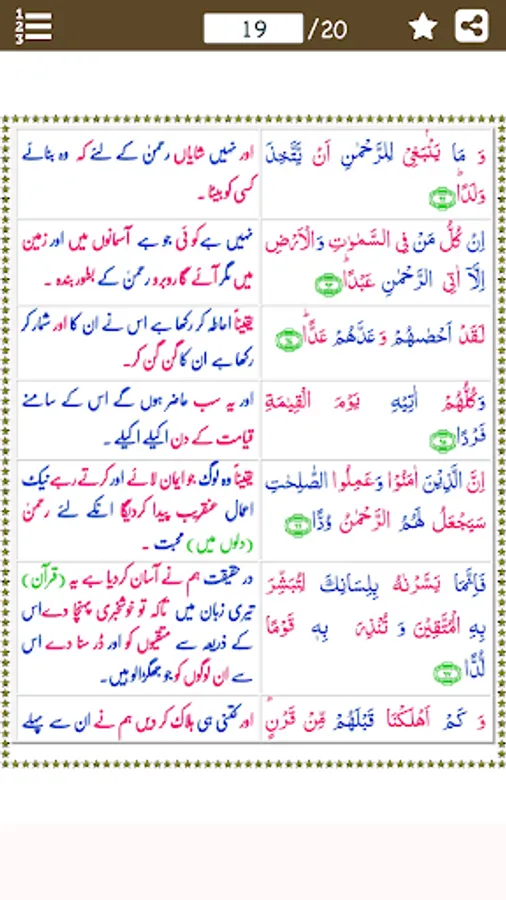 1
2
3
19 /20
وَ مَا يَنْۢبَغِيْ لِلرَّحْمٰنِ اَنْ يَّتَّخِذَ
وَلَدًاؕ ۹۲
اور نہیں شایاں رحمنٰ کے لئے کہ وہ بنائے
کسی کو بیٹا ۔
اِنْ كُلُّ مَنْ فِي السَّمٰوٰتِ وَالْاَرْضِ
اِلَّاۤ اٰتِي الرَّحْمٰنِ عَبْدًاؕ ۹۳
نہیں ہے کوئی جو ہے آسمانوں میں اور زمین
میں مگر آئے گا روبرو رحمنٰ کے بطور بندہ ۔
لَقَدْ اَحْصٰىهُمْ وَعَدَّهُمْ عَدًّاؕ ۹۴
یقیناً احاطہ کر رکھا ہے اس نے ان کا اور شمار کر
رکھا ہے ان کا گن گن کر۔
وَكُلُّهُمْ اٰتِيْهِ يَوْمَ الْقِيٰمَةِ
فَرْدًا ۹۵
اور یہ سب حاضر ہوں گے اس کے سامنے
قیامت کے دن اکیلے اکیلے ۔
اِنَّ الَّذِيْنَ اٰمَنُوْا وَعَمِلُوا الصّٰلِحٰتِ
سَيَجْعَلُ لَهُمُ الرَّحْمٰنُ وُدًّا ۹۶
یقیناً وہ لوگ جو ایمان لائے اور کرتے رہے نیک
اعمال عنقریب پیدا کردیگا انکے لئے رحمنٰ
(دلوں میں) محبت ۔
فَاِنَّمَا يَسَّرْنٰهُ بِلِسَانِكَ لِتُبَشِّرَ
بِهِ الْمُتَّقِيْنَ وَ تُنْذِرَ بِهٖ قَوْمًا
لُّدًّا ۹۷
در حقیقت ہم نے آسان کردیا ہے یہ (قرآن)
تیری زبان میں تاکہ تو خوشخبری پہنچا دے اس
کے ذریعہ سے متقیوں کو اور ڈر سنا دے اس
سے ان لوگوں کو جو جھگڑالو ہیں۔
وَ كَمْ اَهْلَكْنَا قَبْلَهُمْ مِّنْ قَرْنٍؕ
اور کتنی ہی ہلاک کر دیں ہم نے ان سے پہلے